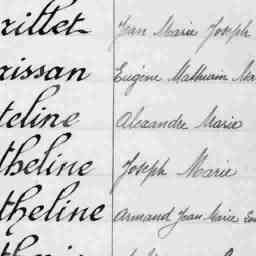 rillet Jean Marie Joseph
rissan Eugène Mathurin
teline Alexandre Marie
theline Joseph Marie
theline Armand Jean Marie